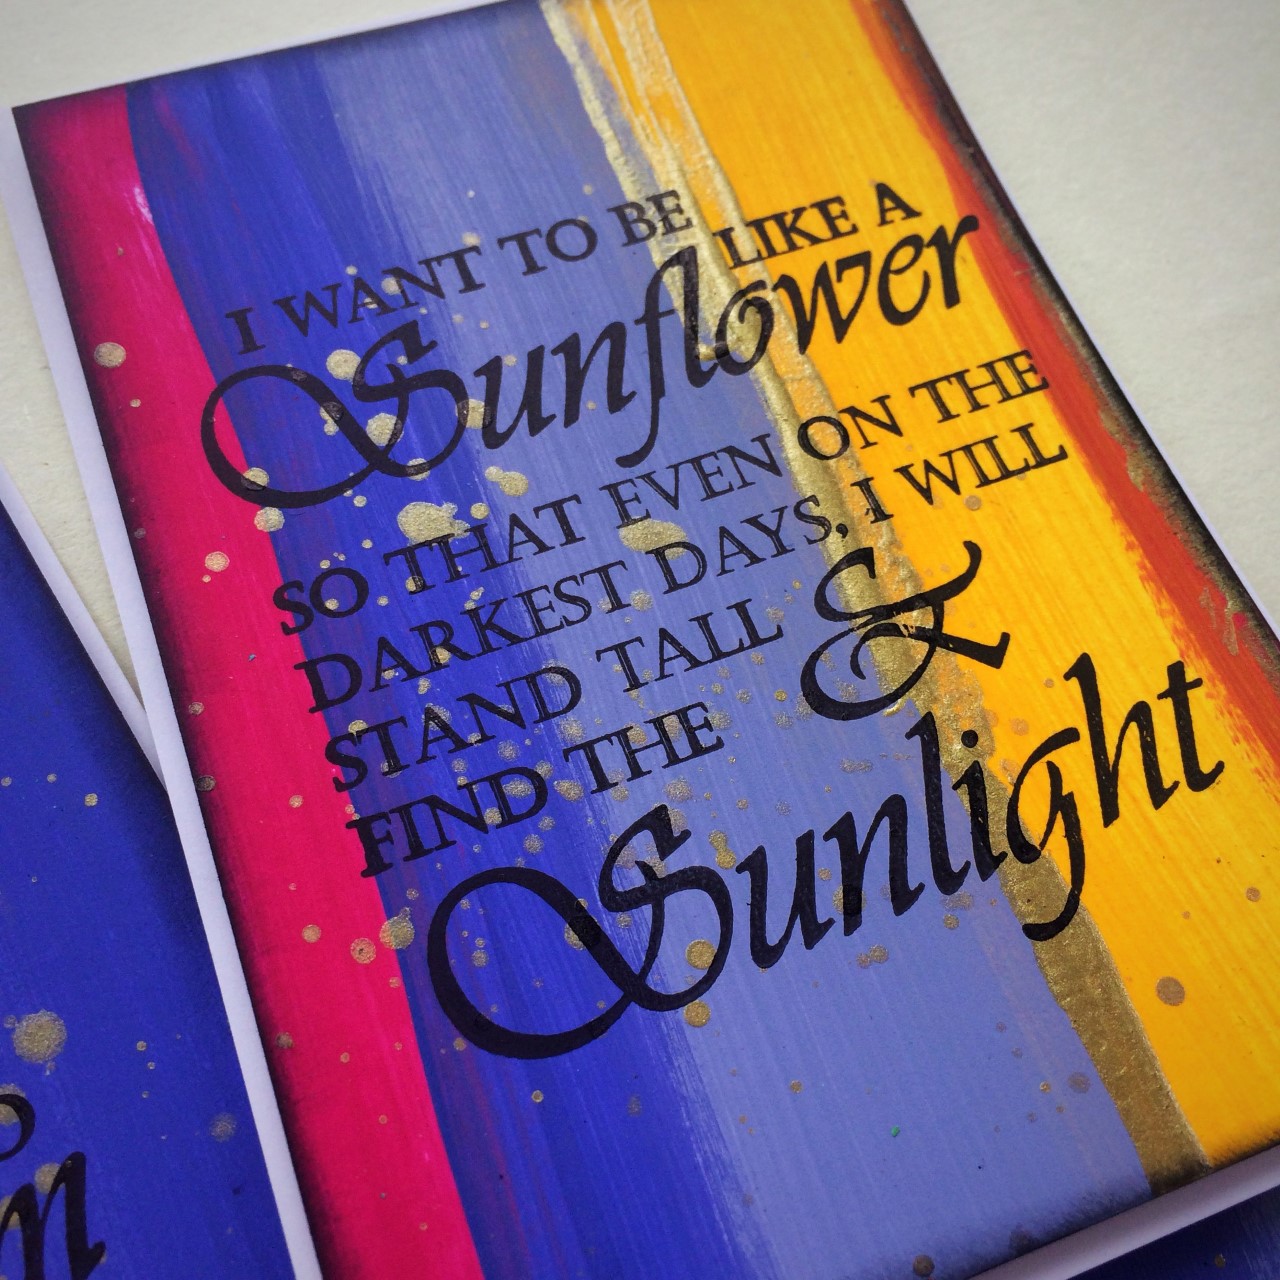 I WANT TO BE LIKE A
Sunflower
SO THAT EVEN ON THE
DARKEST DAYS, I WILL
STAND TALL &
FIND THE
Sunlight